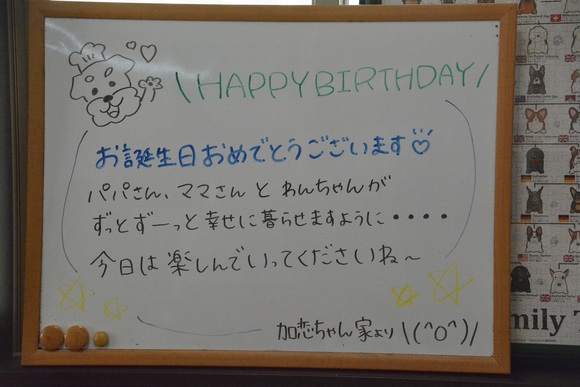 \HAPPY BIRTHDAY/
お誕生日おめでとうございます♡
パパさん、ママさんと わんちゃんが
ずっとずーっと幸せに暮らせますように・・・・
今日は楽しんでいってくださいね〜
加恋ちゃん家より \(^O^)/
mily T